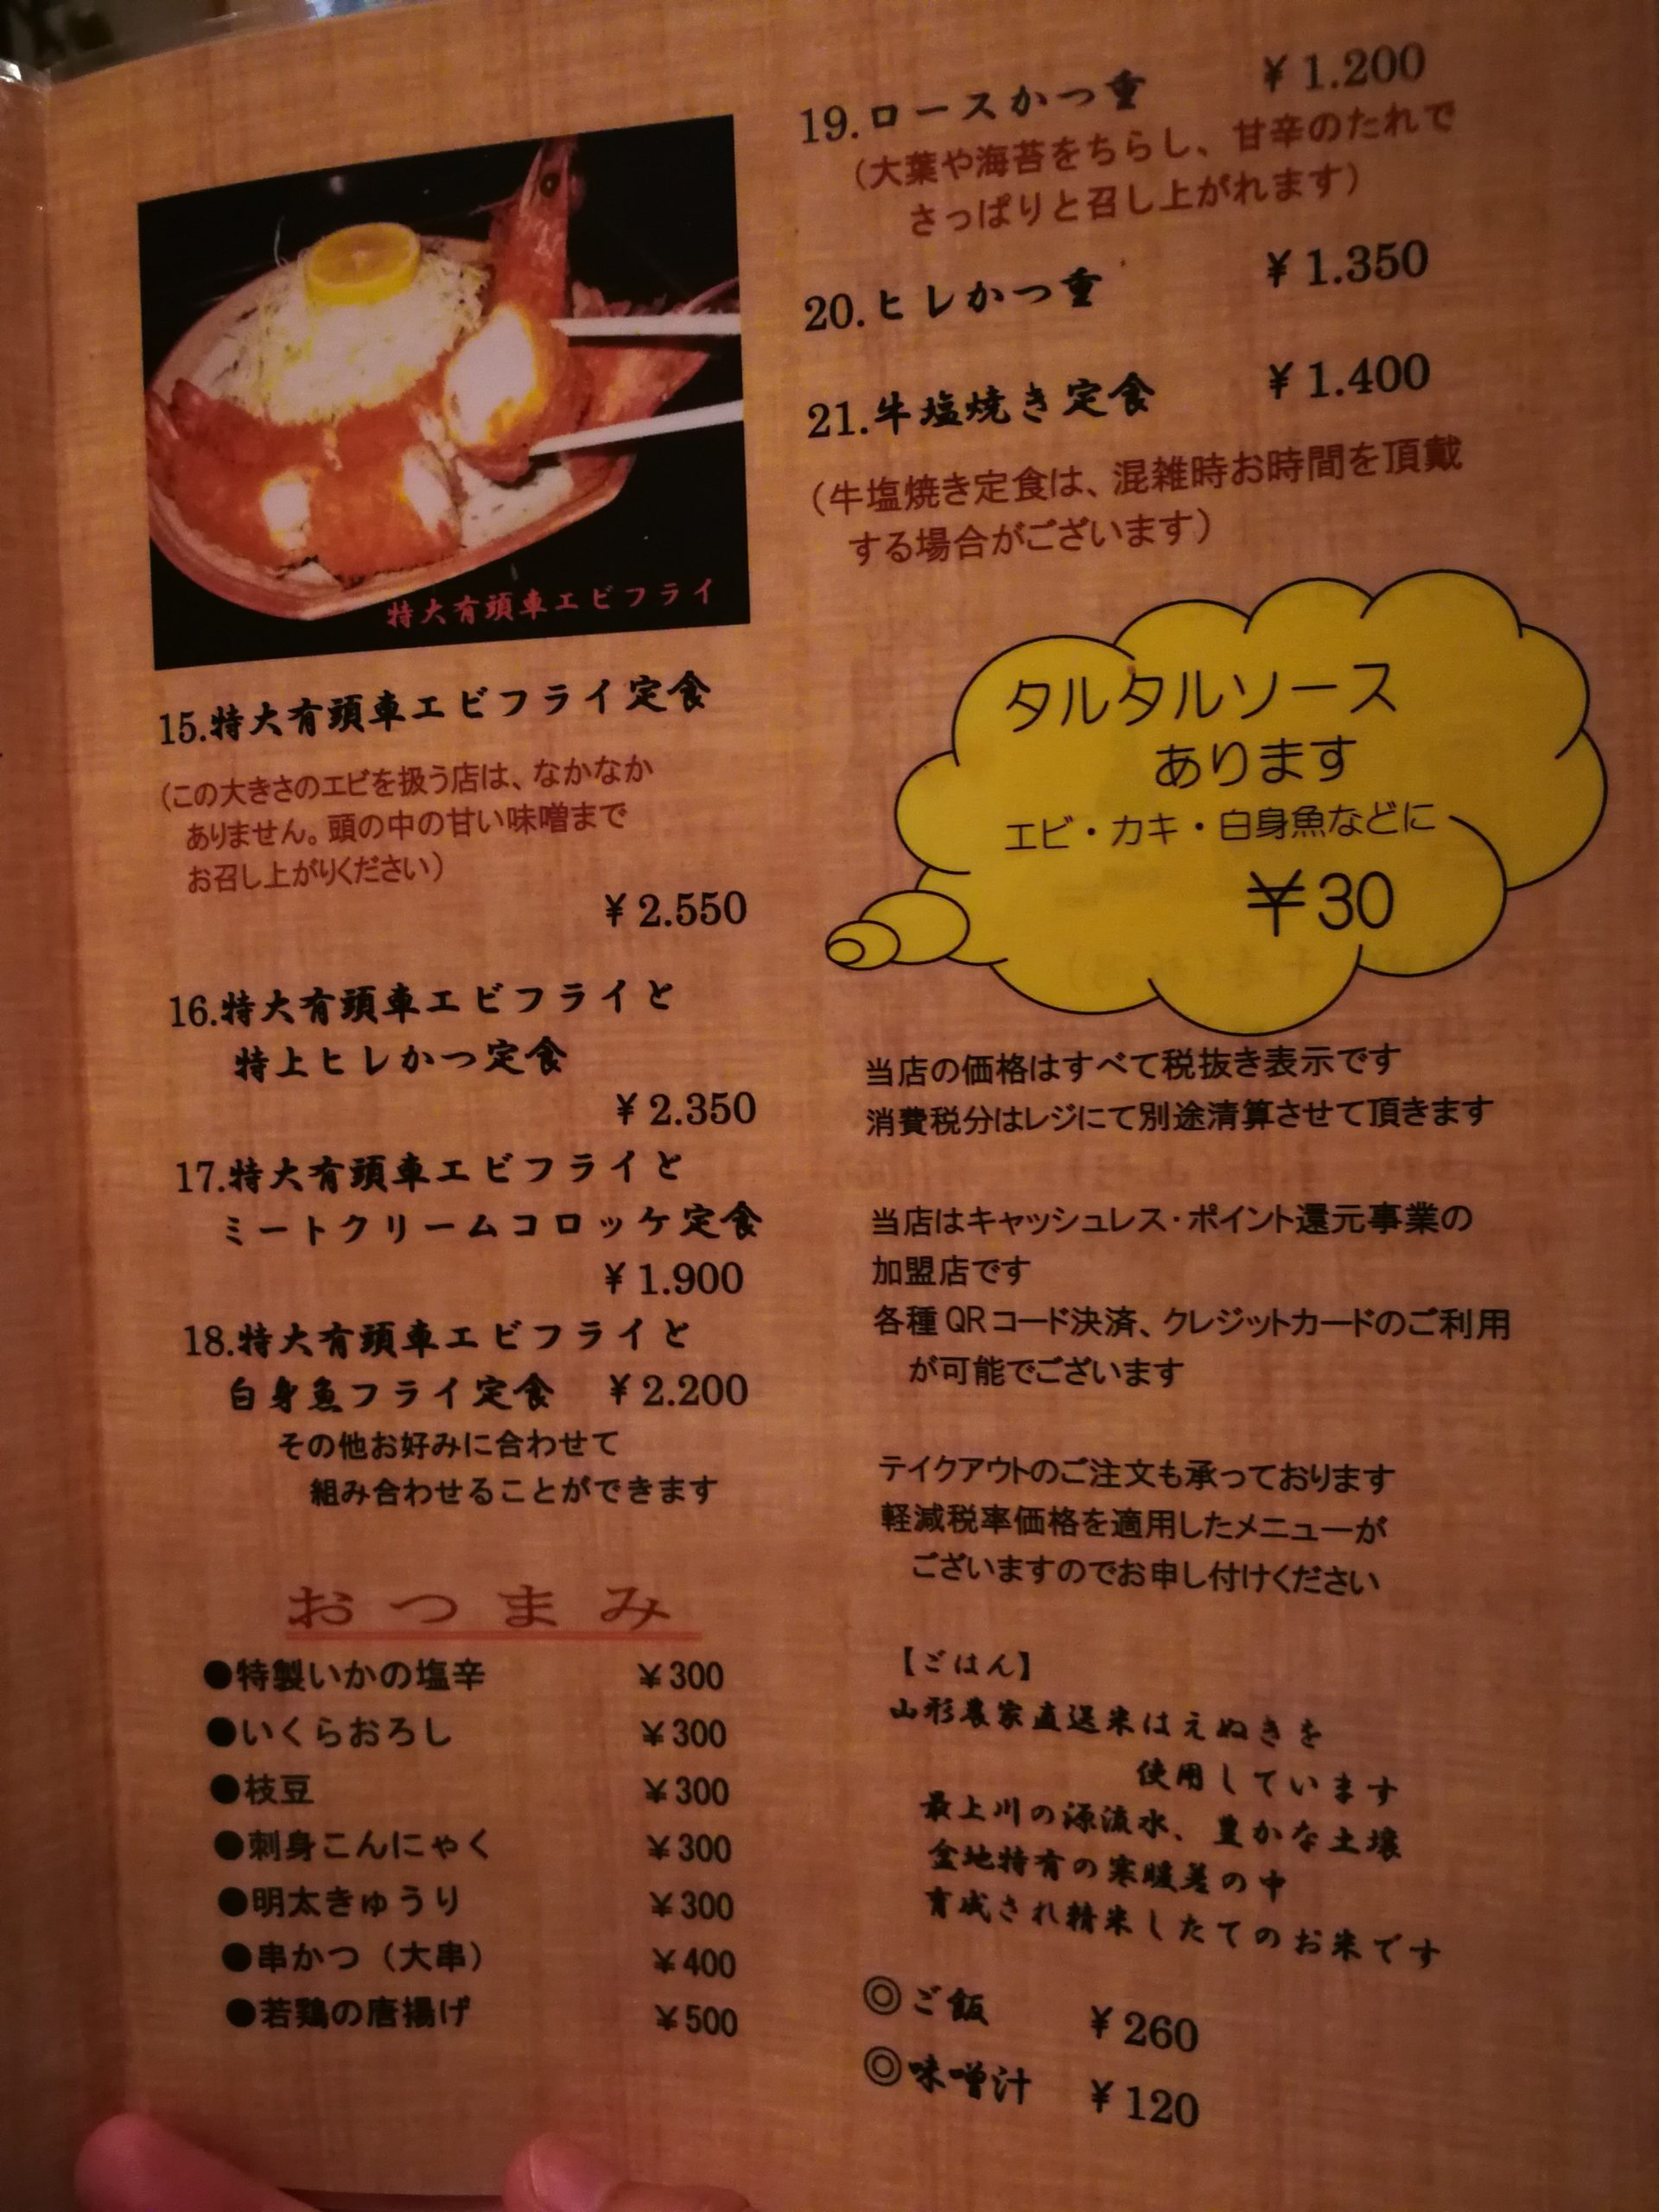 特大有頭車エビフライ
15.特大有頭車エビフライ定食
（この大きさのエビを扱う店は、なかなか
ありません。頭の中の甘い味噌まで
お召し上がりください）
￥2.550
16.特大有頭車エビフライと
特上ヒレかつ定食
￥2.350
17.特大有頭車エビフライと
ミートクリームコロッケ定食
￥1.900
18.特大有頭車エビフライと
白身魚フライ定食 ￥2.200
その他お好みに合わせて
組み合わせることができます
おつまみ
●特製いかの塩辛 ￥300
●いくらおろし ￥300
●枝豆 ￥300
●刺身こんにゃく ￥300
●明太きゅうり ￥300
●串かつ（大串） ￥400
●若鶏の唐揚げ ￥500
19.ロースかつ重 ￥1.200
（大葉や海苔をちらし、甘辛のたれで
さっぱりと召し上がれます）
20.ヒレかつ重 ￥1.350
21.牛塩焼き定食 ￥1.400
（牛塩焼き定食は、混雑時お時間を頂戴
する場合がございます）
タルタルソース
あります
エビ・カキ・白身魚などに
￥30
当店の価格はすべて税抜き表示です
消費税分はレジにて別途清算させて頂きます
当店はキャッシュレス・ポイント還元事業の
加盟店です
各種QRコード決済、クレジットカードのご利用
が可能でございます
テイクアウトのご注文も承っております
軽減税率価格を適用したメニューが
ございますのでお申し付けください
【ごはん】
山形農家直送米はえぬきを
使用しています
最上川の源流水、豊かな土壌
盆地特有の寒暖差の中
育成され精米したてのお米です
◎ご飯 ￥260
◎味噌汁 ￥120